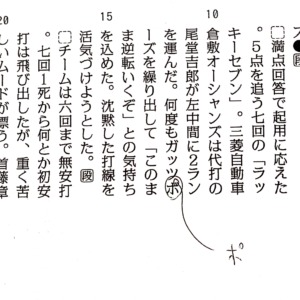 満点回答で起用に応えた
。５点を追う七回の「ラッ
キーセブン」。三菱自動車
10
倉敷オーシャンズは代打の
尾堂吉郎が左中間に２ラン
を運んだ。何度もガッツポ
ポ
ーズを繰り出して「このま
ま逆転いくぞ」との気持ち
15
を込めた。沈黙した打線を
活気づけようとした。段
チームは六回まで無安打
。七回１死から何とか初安
打は飛び出したが、重く苦
20
しいムードが漂う。首藤章